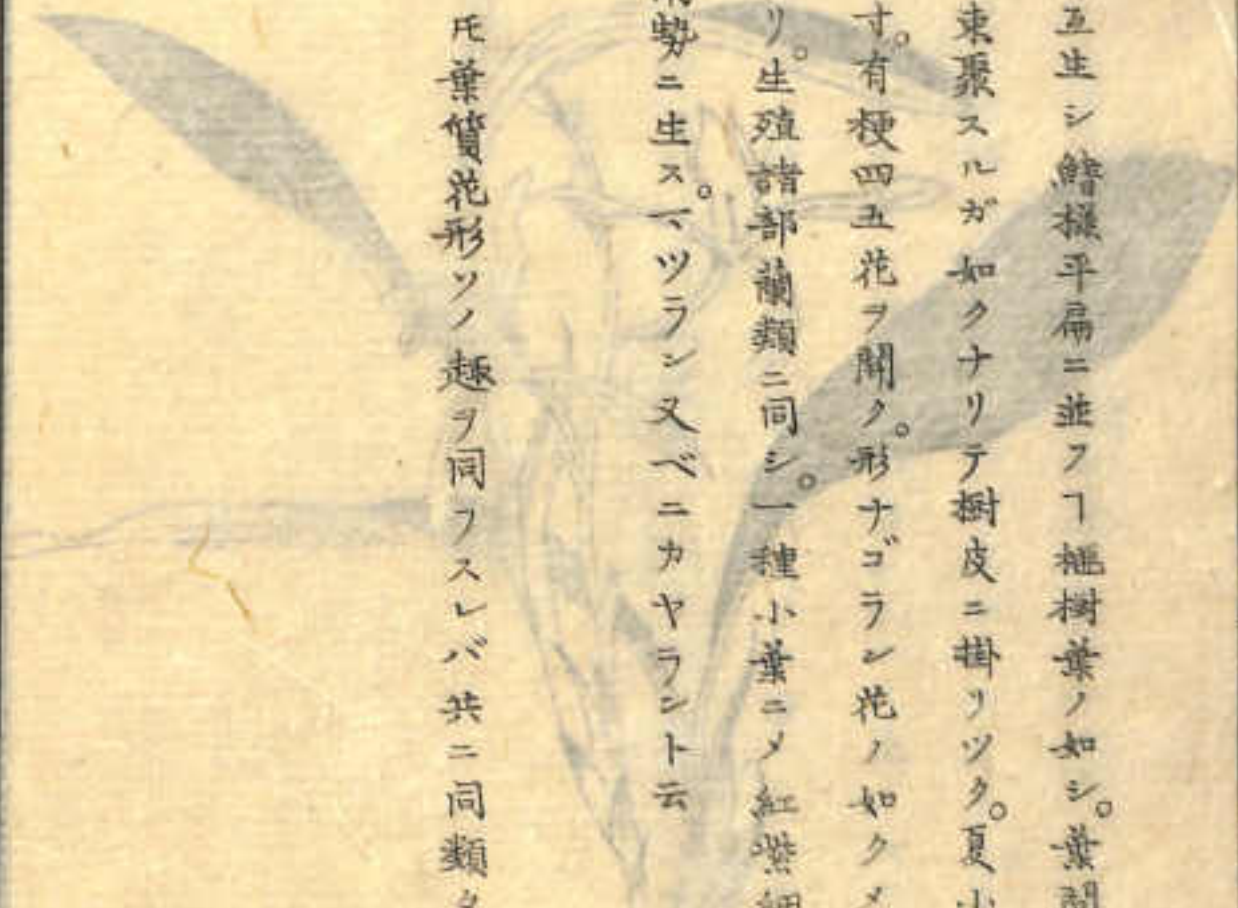 互生シ鰭様平扁ニ並フヿ榧樹葉ノ如シ。葉間
束聚スルガ如クナリテ樹皮ニ掛リツク。夏小
寸。有梗四五花ヲ開ク。形ナゴラン花ノ如クメ
リ。生殖諸部蘭類ニ同シ。一種小葉ニメ紅紫細
勢ニ生ス。マツラン又ベニカヤラント云
氏葉質花形ソノ趣ヲ同フスレバ共ニ同類タ